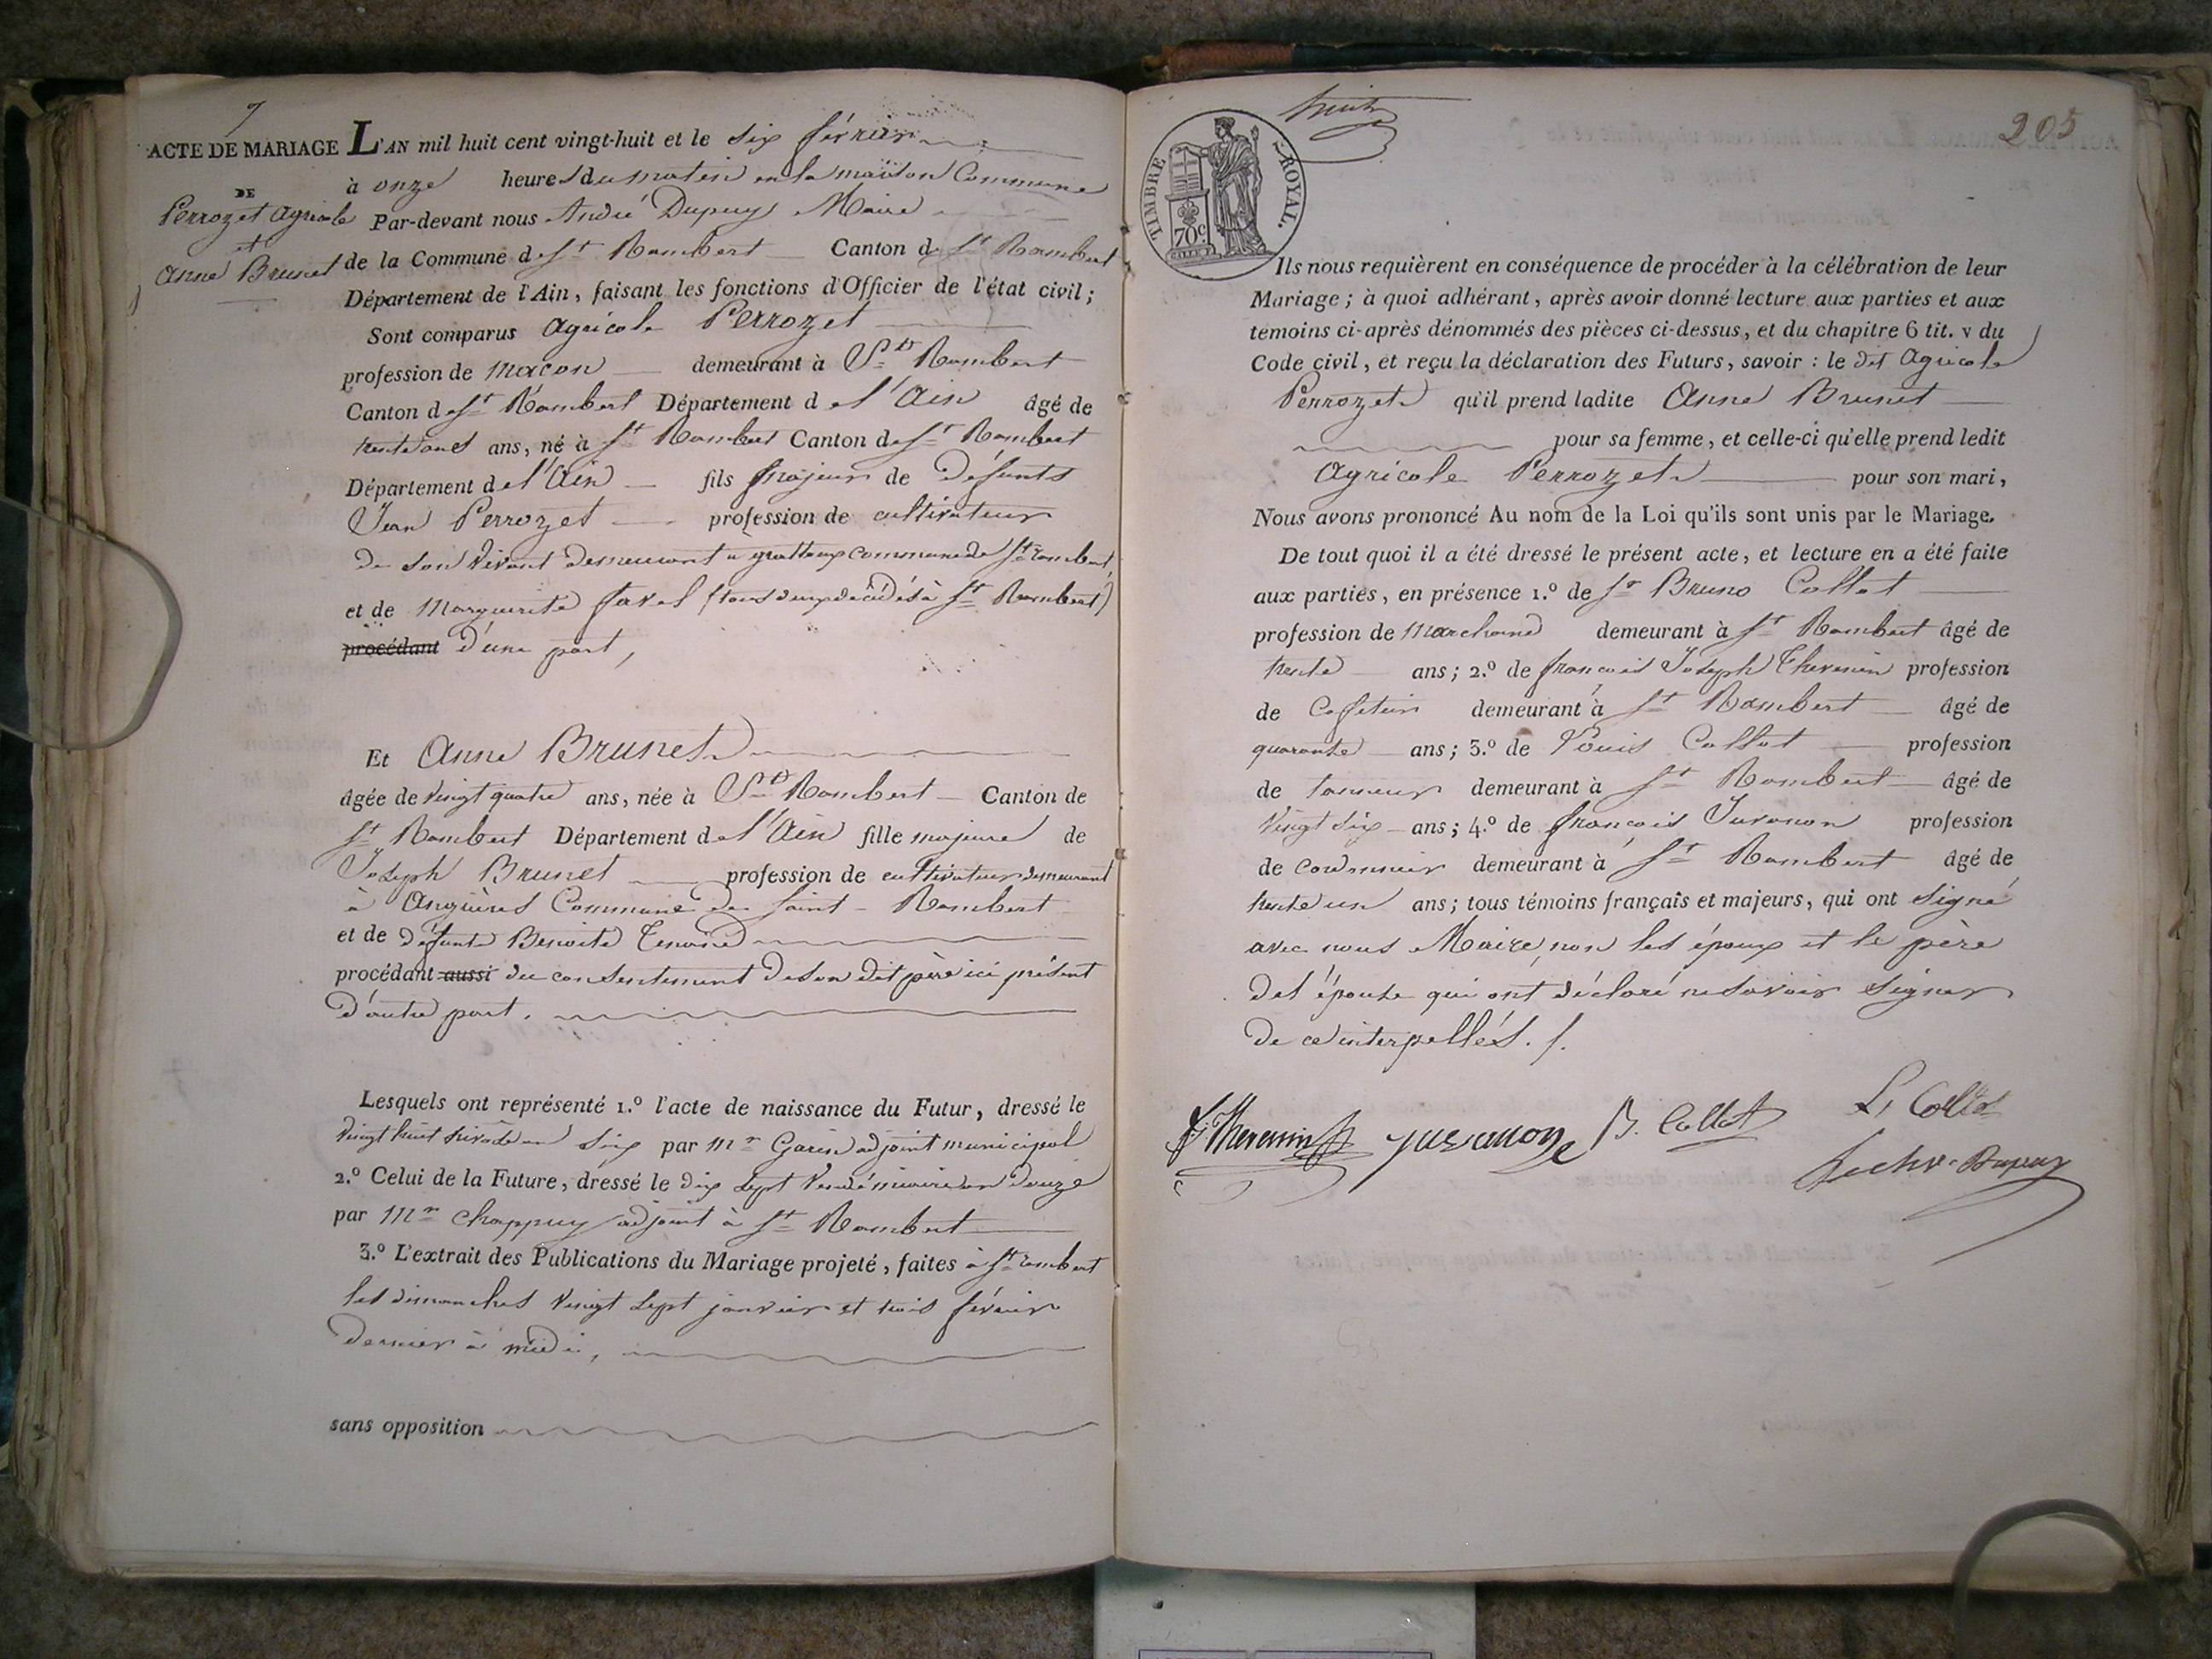 7
ACTE DE MARIAGE
DE
Perrozet Agricole
et
Anne Brunet
L'AN mil huit cent vingt-huit et le Six février
à onze heures du matin en la maison Commune
Par-devant nous André Dupuy Maire
de la Commune de St Rambert Canton de St Rambert
Département de l'Ain, faisant les fonctions d'Officier de l'état civil;
Sont comparus Agricole Perrozet
profession de maçon demeurant à St Rambert
Canton de St Rambert Département de l'Ain âgé de
trente ans, né à St Rambert Canton de St Rambert
Département de l'Ain fils majeur de défunts
Jean Perrozet profession de cultivateur
de son vivant demeurant a grattoux commune de St rambert
et de Marguerite favel (tous deux décédés à St Rambert)
procédant d'une part,
Et Anne Brunet
âgée de vingt quatre ans, née à St Rambert Canton de
St Rambert Département de l'Ain fille majeure de
Joseph Brunet profession de cultivateur demeurant
à Angrières Commune de Saint-Rambert
et de défunte Benoite
procédant aussi du consentement de son dit père ici présent
d'autre part.
Lesquels ont représenté 1.º l'acte de naissance du Futur, dressé le
vingt huit nivôse an Six par Mr Garin adjoint municipal
2.º Celui de la Future, dressé le dix sept Vendémiaire an douze
par Mr Chappuy adjoint à St Rambert
3.º L'extrait des Publications du Mariage projeté, faites à St rambert
les dimanches vingt sept janvier et trois février
dernier à midi,
sans opposition
TIMBRE ROYAL.
70c.
205
Ils nous requièrent en conséquence de procéder à la célébration de leur
Mariage; à quoi adhérant, après avoir donné lecture aux parties et aux
temoins ci-après dénommés des pièces ci-dessus, et du chapitre 6 tit. v du
Code civil, et reçu la déclaration des Futurs, savoir : le dit Agricole
Perrozet qu'il prend ladite Anne Brunet
pour sa femme, et celle-ci qu'elle prend ledit
Agricole Perrozet pour son mari,
Nous avons prononcé Au nom de la Loi qu'ils sont unis par le Mariage.
De tout quoi il a été dressé le présent acte, et lecture en a été faite
aux parties, en présence 1.º de Sr Bruno Collot
profession de Marchand demeurant à St Rambert âgé de
trente ans; 2.º de françois Joseph Thevenin profession
de Cafetier demeurant à St Rambert âgé de
quarante ans; 3.º de Louis Collot profession
de tanneur demeurant à St Rambert âgé de
vingt six ans; 4.º de françois Juvanon profession
de cordonnier demeurant à St Rambert âgé de
trente un ans; tous témoins français et majeurs, qui ont signé
avec nous Maire, non les époux et le père
de l'épouse qui ont déclaré ne savoir signer
de ce interpellés. /.
Thevenin Juvanon B. Collot L. Collot
Dupuy